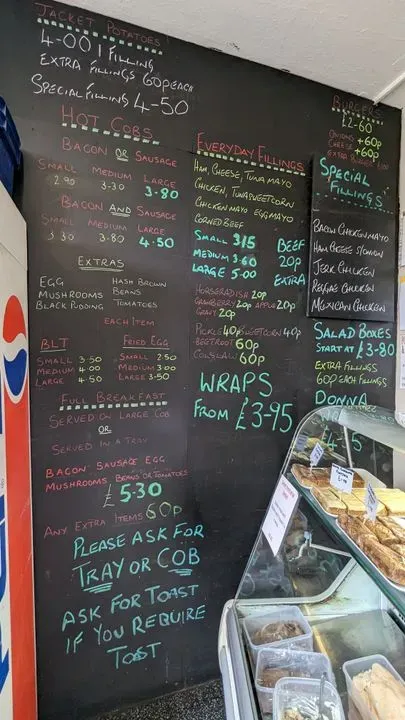 JACKET POTATOES
4-00 1 FILLING
EXTRA FILLINGS 60p EACH
SPECIAL FILLING 4-50
HOT COBS
BACON OR SAUSAGE
SMALL MEDIUM LARGE
2.90 3-30 3-80
BACON AND SAUSAGE
SMALL MEDIUM LARGE
3.30 3-80 4-50
EXTRAS
EGG HASH BROWN
MUSHROOMS BEANS
BLACK PUDDING TOMATOES
EACH ITEM
BLT
SMALL 3.50
MEDIUM 4.00
LARGE 4-50
FRIED EGG
SMALL 2-50
MEDIUM 3-00
LARGE 3-50
FULL BREAKFAST
SERVED ON LARGE COB
OR
SERVED IN A TRAY
BACON SAUSAGE EGG
MUSHROOMS BEANS OR TOMATOES
£5-30
ANY EXTRA ITEMS 60p
PLEASE ASK FOR
TRAY OR COB
ASK FOR TOAST
IF YOU REQUIRE
TOAST
EVERYDAY FILLINGS
HAM, CHEESE, TUNA MAYO
CHICKEN, TUNA SWEETCORN
CHICKEN MAYO EGG MAYO
CORNED BEEF
SMALL 3.15
MEDIUM 3-60
LARGE 5-00
BEEF
20p
EXTRA
HORSERADISH 20p
CRANBERRY 20p APPLE 20p
GRAVY 20p
PICKLE 40p SWEETCORN 40p
BEETROOT 60p
COLSLAW 60p
WRAPS
FROM £3-95
BURGERS
£2-60
ONIONS +60p
CHEESE +60p
EXTRA BURGER
SPECIAL
FILLINGS
BACON CHICKEN MAYO
HAM CHEESE
JERK CHICKEN
REGGAE CHICKEN
MEXICAN CHICKEN
SALAD BOXES
START AT £3-80
EXTRA FILLINGS
60p EACH FILLINGS
DONNA